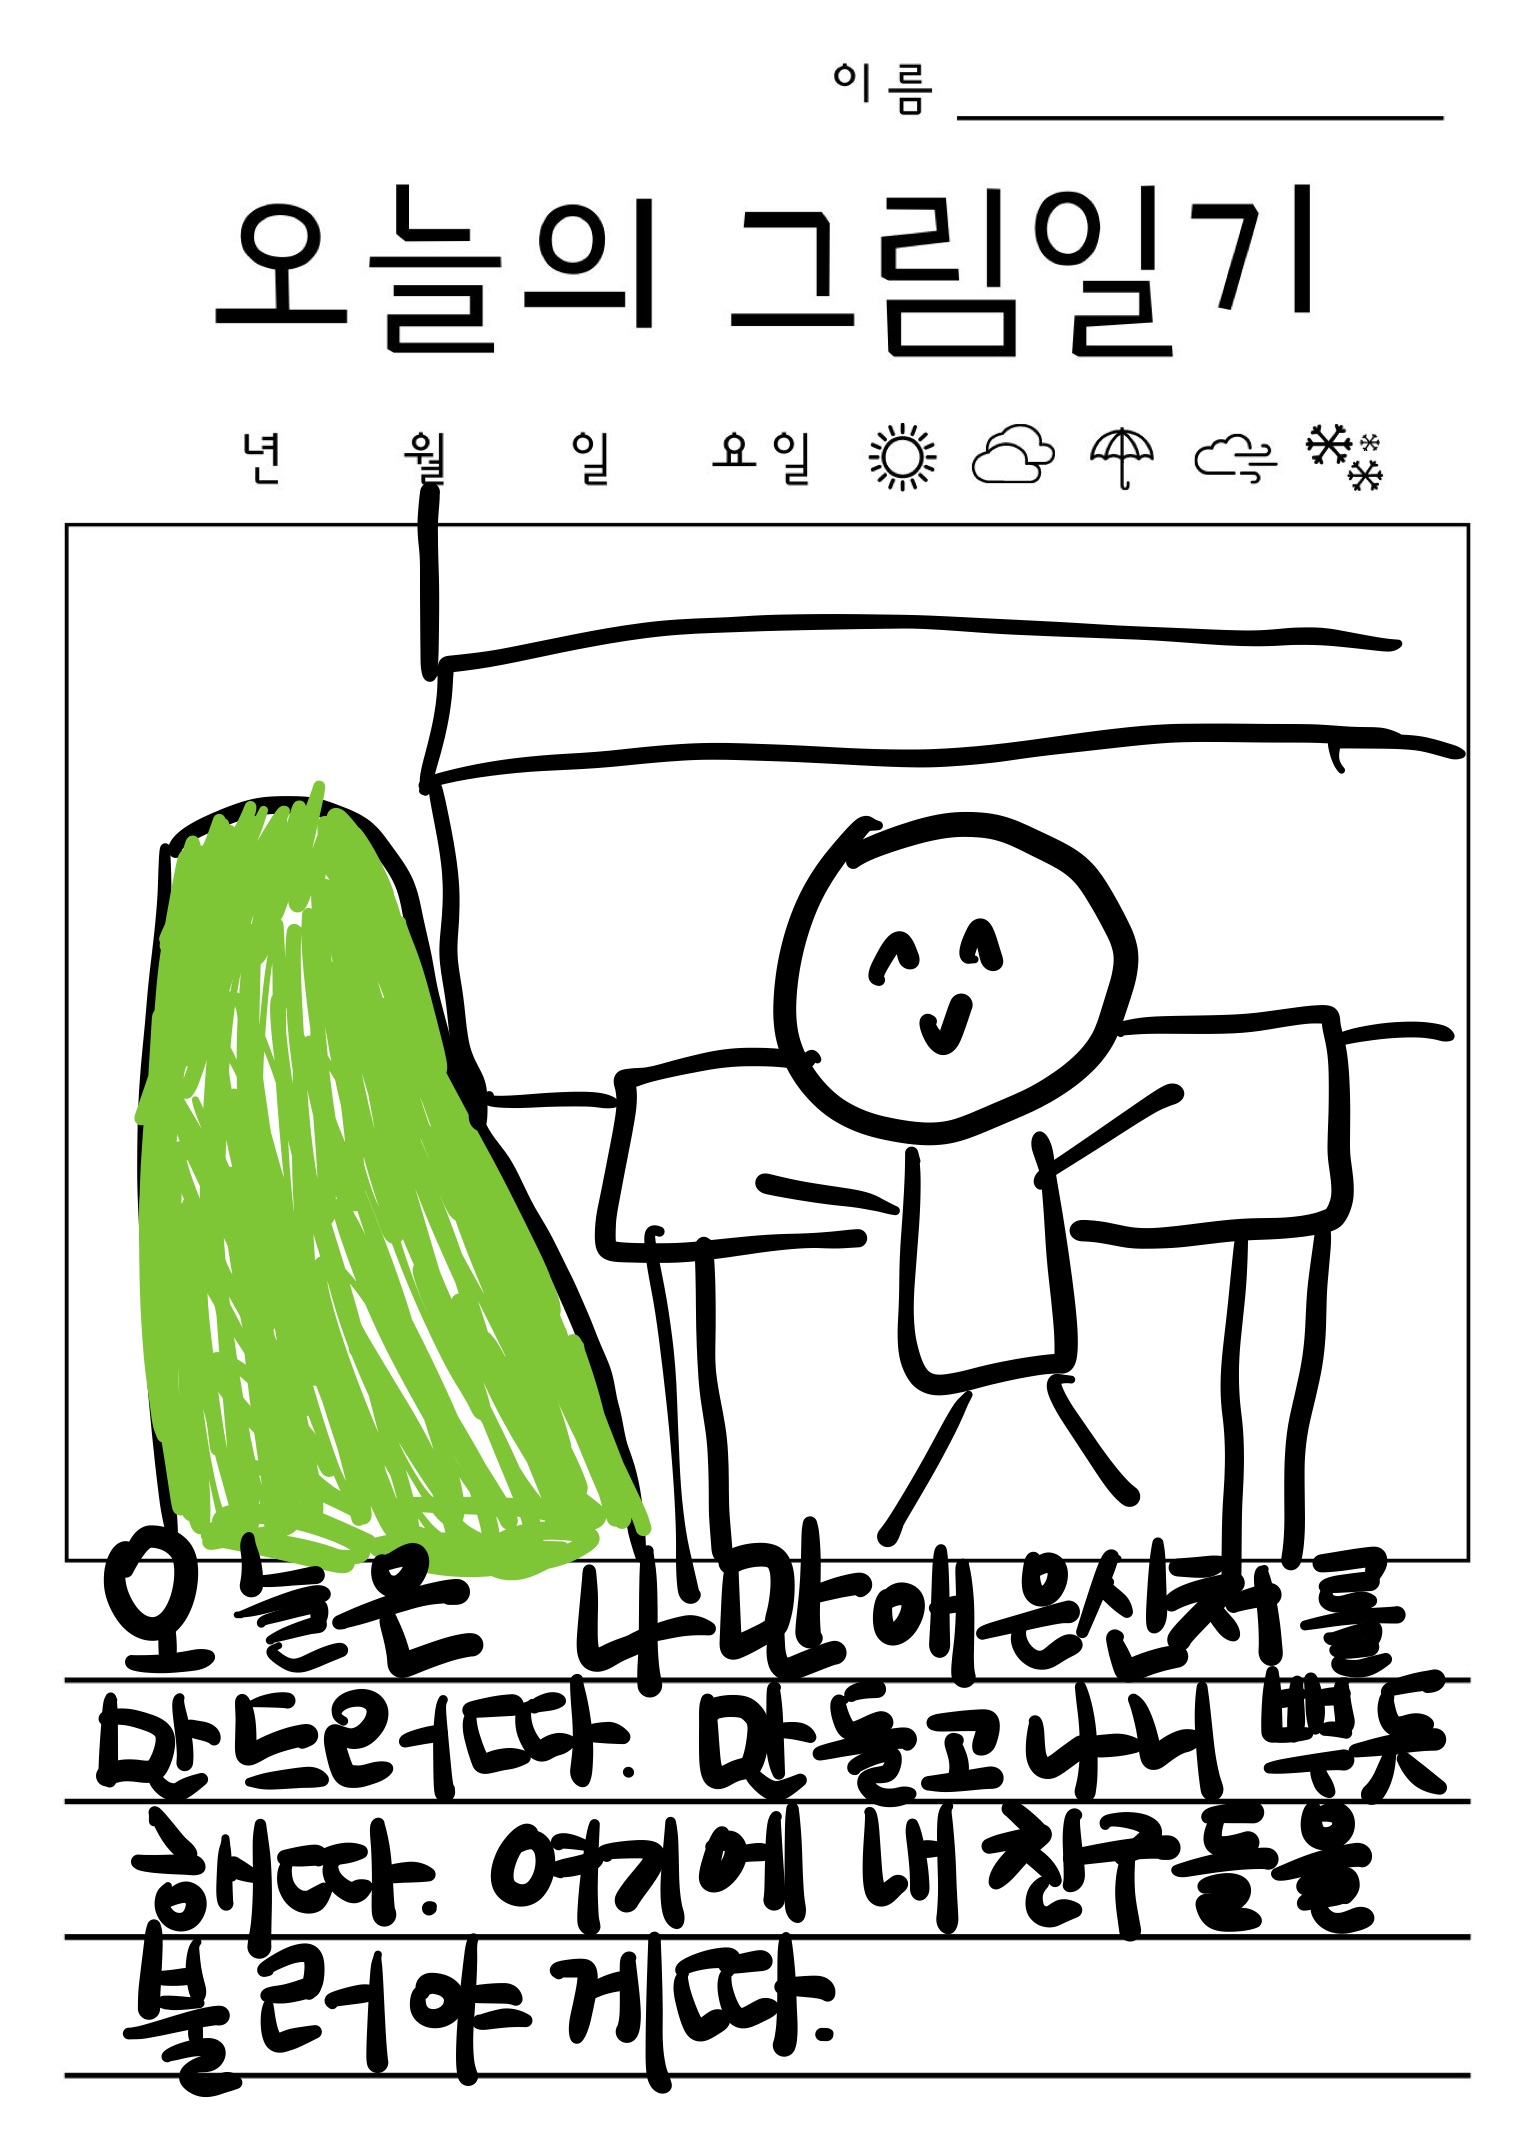 이름
오늘의 그림일기
년 월 일 요일
오늘은 나만애은신처를
만드러따. 만들고나니 뿌듯
해따. 여기에 내친구들을
불러야게따.